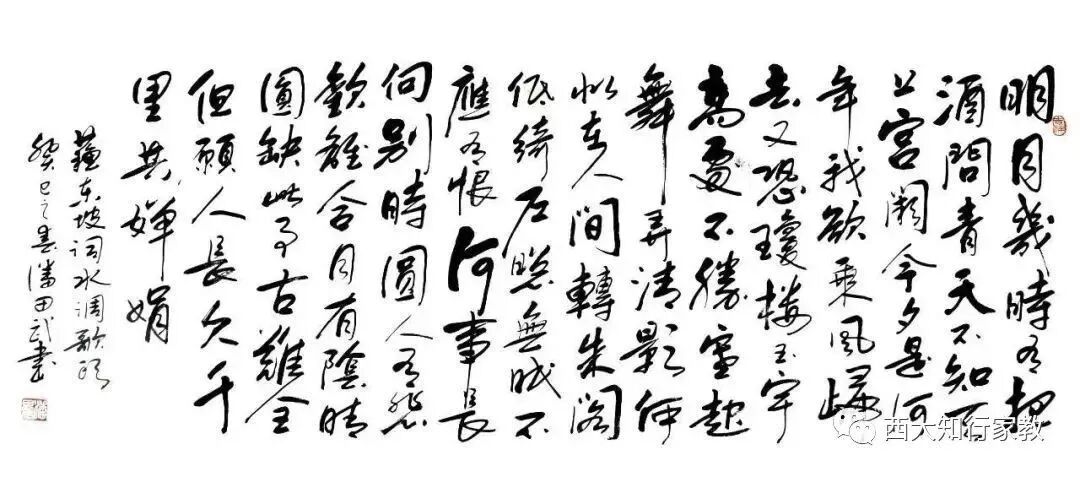 明月幾時有把
酒問青天不知天
上宮闕今夕是何
年我欲乘風歸
去又恐瓊楼玉宇
高處不勝寒起
舞弄清影何
似在人間轉朱閣
低綺户照無眠不
應有恨何事長
向别時圓人有悲
歡離合月有陰晴
圓缺此事古難全
但願人長久千
里共嬋娟
蘇東坡词水调歌頭
癸巳之春潘田武書
西大知行家教